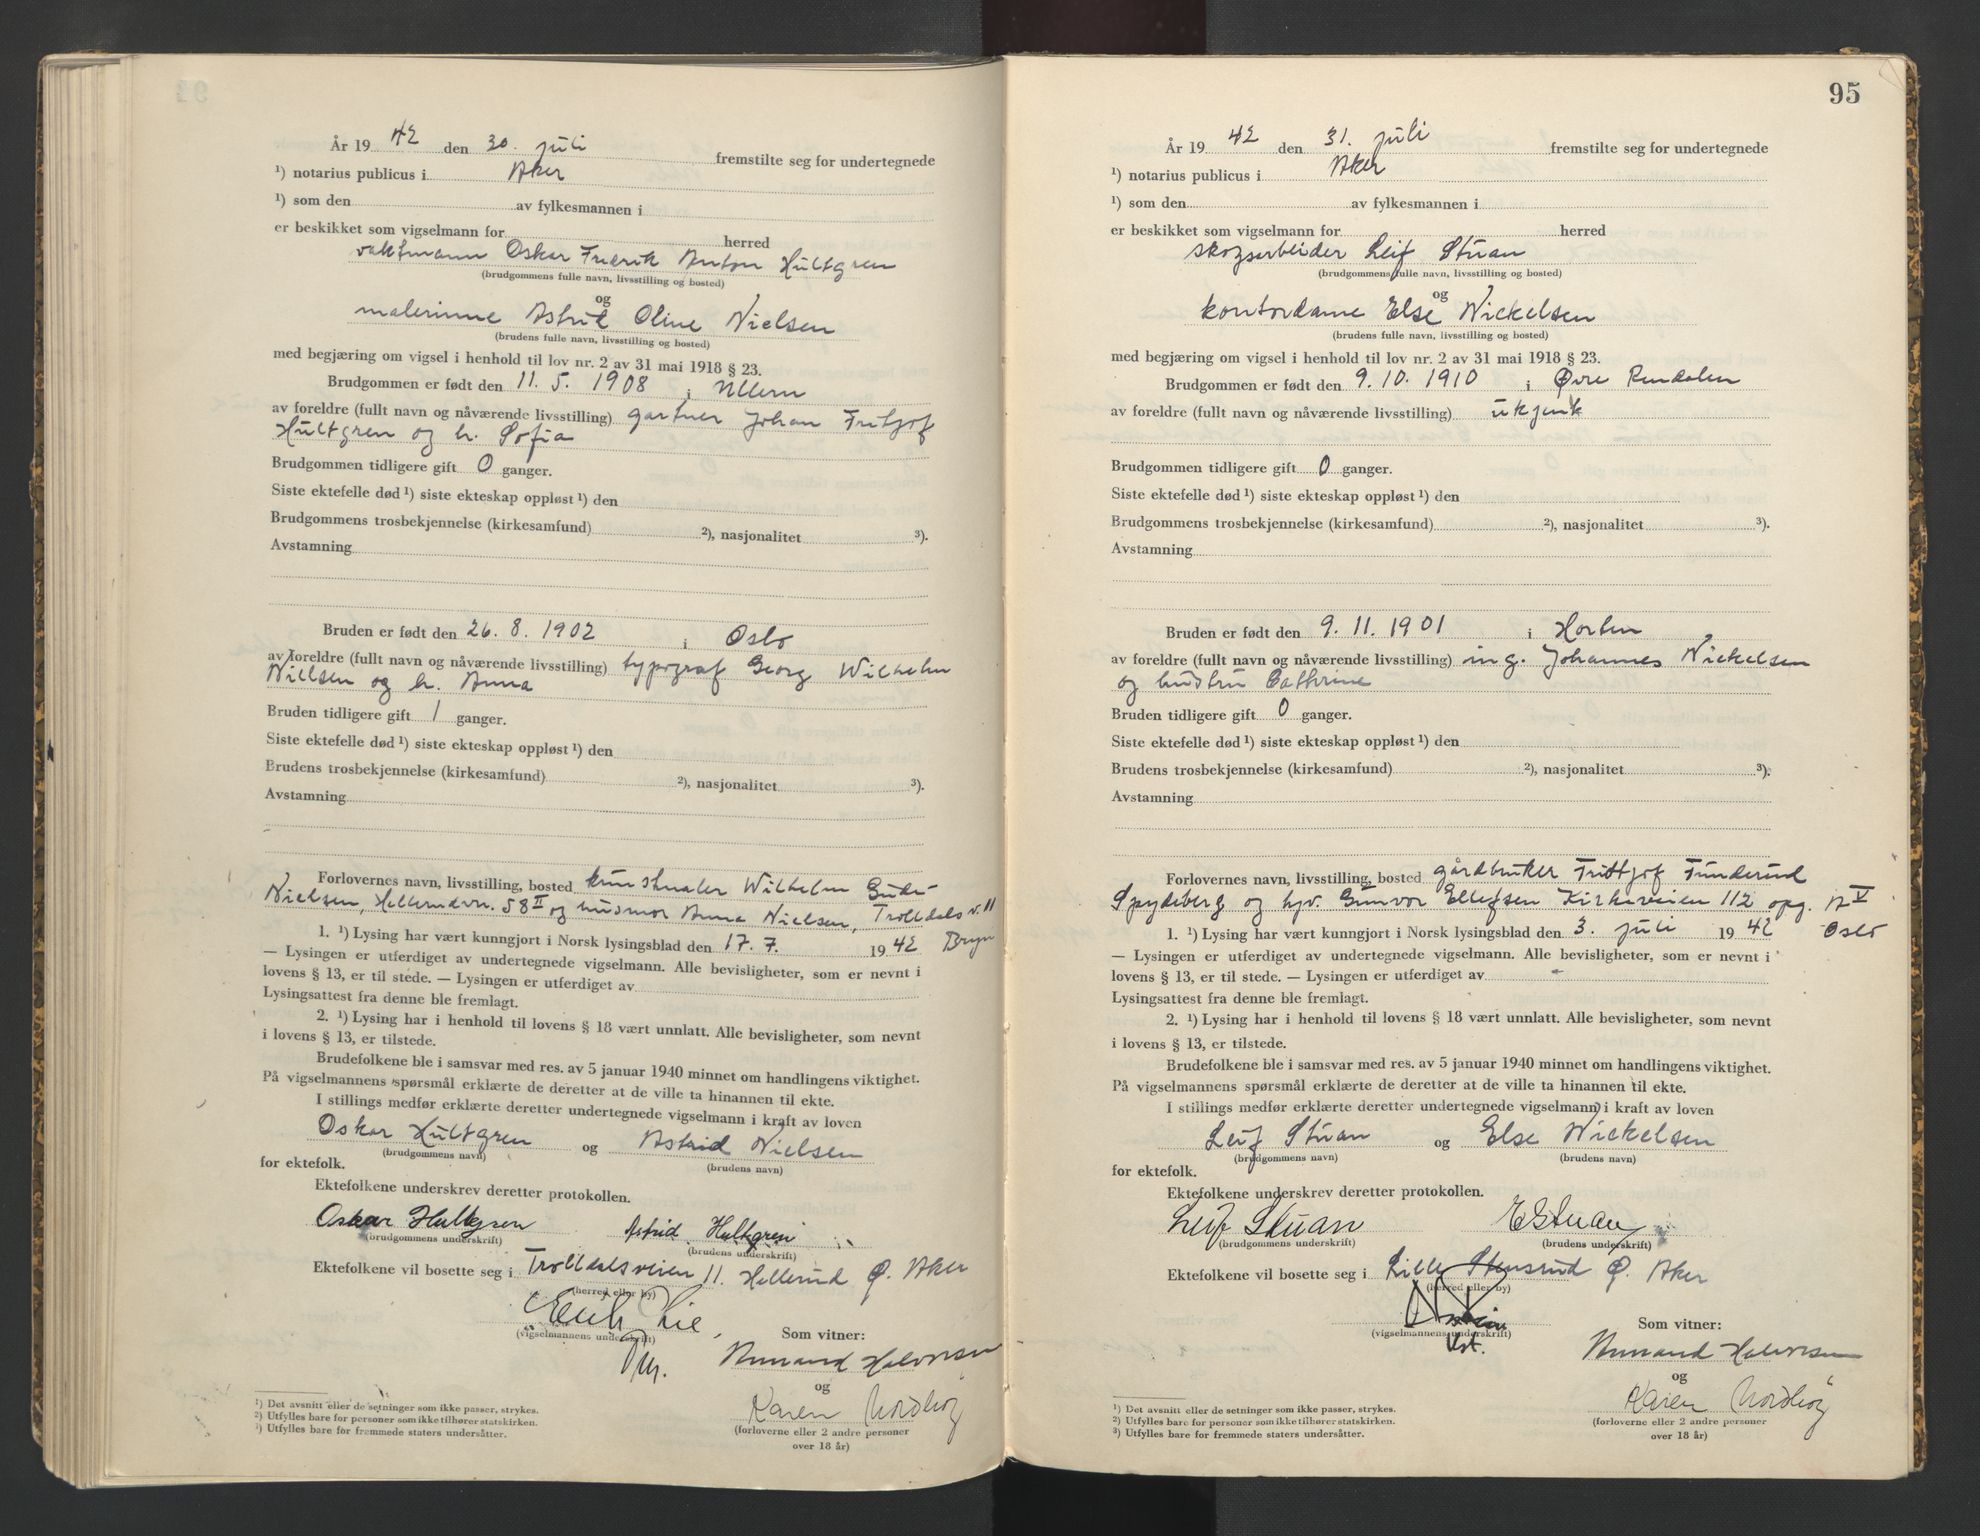 År 19 42 den 30. juli fremstilte seg for undertegnede
¹) notarius publicus i Aker
¹) som den av fylkesmannen i
er beskikket som vigselmann for herred
vaktmann Oskar Fredrik Anton Hultgren
(brudgommens fulle navn, livsstilling og bosted)
og
malerinne Astrid Oline Nielsen
(brudens fulle navn, livsstilling og bosted)
med begjæring om vigsel i henhold til lov nr. 2 av 31 mai 1918 § 23.
Brudgommen er født den 11. 5. 1908 i Ullern
av foreldre (fullt navn og nåværende livsstilling) gartner Johan Fritjof
Hultgren og h. Sofia
Brudgommen tidligere gift 0 ganger.
Siste ektefelle død ¹) siste ekteskap oppløst ¹) den
Brudgommens trosbekjennelse (kirkesamfund) ²), nasjonalitet ³).
Avstamning
Bruden er født den 26. 8. 1902 i Oslo
av foreldre (fullt navn og nåværende livsstilling) typograf Georg Wilhelm
Nielsen og h. Anna
Bruden tidligere gift 1 ganger.
Siste ektefelle død ¹) siste ekteskap oppløst ¹) den
Brudens trosbekjennelse (kirkesamfund) ²), nasjonalitet ³).
Avstamning
Forlovernes navn, livsstilling, bosted kunstmaler Wilhelm
Nielsen, 58 II og husmor Anna Nielsen, Trolldalsv. 11
1. ¹) Lysing har vært kunngjort i Norsk lysingsblad den 17. 7. 1942 Bryn
— Lysingen er utferdiget av undertegnede vigselmann. Alle bevisligheter, som er nevnt i
lovens § 13, er til stede. — Lysingen er utferdiget av
Lysingsattest fra denne ble fremlagt.
2. ¹) Lysing har i henhold til lovens § 18 vært unnlatt. Alle bevisligheter, som nevnt
i lovens § 13, er tilstede.
Brudefolkene ble i samsvar med res. av 5 januar 1940 minnet om handlingens viktighet.
På vigselmannens spørsmål erklærte de deretter at de ville ta hinannen til ekte.
I stillings medfør erklærte deretter undertegnede vigselmann i kraft av loven
Oskar Hultgren og Astrid Nielsen
(brudgommens navn) (brudens navn)
for ektefolk.
Ektefolkene underskrev deretter protokollen.
Oskar Hultgren Astrid Hultgren
(brudgommens underskrift) (brudens underskrift)
Ektefolkene vil bosette seg i Trolldalsveien 11. Hellerud Ø. Aker
(herred eller by)
(vigselmannens underskrift)
Som vitner:
Amund Halvorsen
og
Karen Nordbøy
(forloverne eller 2 andre personer
over 18 år)
¹) Det avsnitt eller de setninger som ikke passer, strykes.
²) Utfylles bare for personer som ikke tilhører statskirken.
³) Utfylles bare for fremmede staters undersåtter.
95
År 19 42 den 31. juli fremstilte seg for undertegnede
¹) notarius publicus i Aker
¹) som den av fylkesmannen i
er beskikket som vigselmann for herred
skogsarbeider Leif Stuan
(brudgommens fulle navn, livsstilling og bosted)
og
kontordame Else Nickelsen
(brudens fulle navn, livsstilling og bosted)
med begjæring om vigsel i henhold til lov nr. 2 av 31 mai 1918 § 23.
Brudgommen er født den 9. 10. 1910 i Øvre Rendalen
av foreldre (fullt navn og nåværende livsstilling) ukjent
Brudgommen tidligere gift 0 ganger.
Siste ektefelle død ¹) siste ekteskap oppløst ¹) den
Brudgommens trosbekjennelse (kirkesamfund) ²), nasjonalitet ³).
Avstamning
Bruden er født den 9. 11. 1901 i Horten
av foreldre (fullt navn og nåværende livsstilling) ing. Johannes Nickelsen
og hustru Cathrine
Bruden tidligere gift 0 ganger.
Siste ektefelle død ¹) siste ekteskap oppløst ¹) den
Brudens trosbekjennelse (kirkesamfund) ²), nasjonalitet ³).
Avstamning
Forlovernes navn, livsstilling, bosted gårdbruker Frittjof Funderud
Spydeberg og hjv. Gunvor Ellefsen Kirkeveien 112 opg. A V
1. ¹) Lysing har vært kunngjort i Norsk lysingsblad den 3. juli 1942 Oslo
— Lysingen er utferdiget av undertegnede vigselmann. Alle bevisligheter, som er nevnt i
lovens § 13, er til stede. — Lysingen er utferdiget av
Lysingsattest fra denne ble fremlagt.
2. ¹) Lysing har i henhold til lovens § 18 vært unnlatt. Alle bevisligheter, som nevnt
i lovens § 13, er tilstede.
Brudefolkene ble i samsvar med res. av 5 januar 1940 minnet om handlingens viktighet.
På vigselmannens spørsmål erklærte de deretter at de ville ta hinannen til ekte.
I stillings medfør erklærte deretter undertegnede vigselmann i kraft av loven
Leif Stuan og Else Nickelsen
(brudgommens navn) (brudens navn)
for ektefolk.
Ektefolkene underskrev deretter protokollen.
Leif Stuan E Stuan
(brudgommens underskrift) (brudens underskrift)
Ektefolkene vil bosette seg i Lille Stensrud Ø. Aker
(herred eller by)
(vigselmannens underskrift)
Som vitner:
Amund Halvorsen
og
Karen Nordbøy
(forloverne eller 2 andre personer
over 18 år)
¹) Det avsnitt eller de setninger som ikke passer, strykes.
²) Utfylles bare for personer som ikke tilhører statskirken.
³) Utfylles bare for fremmede staters undersåtter.